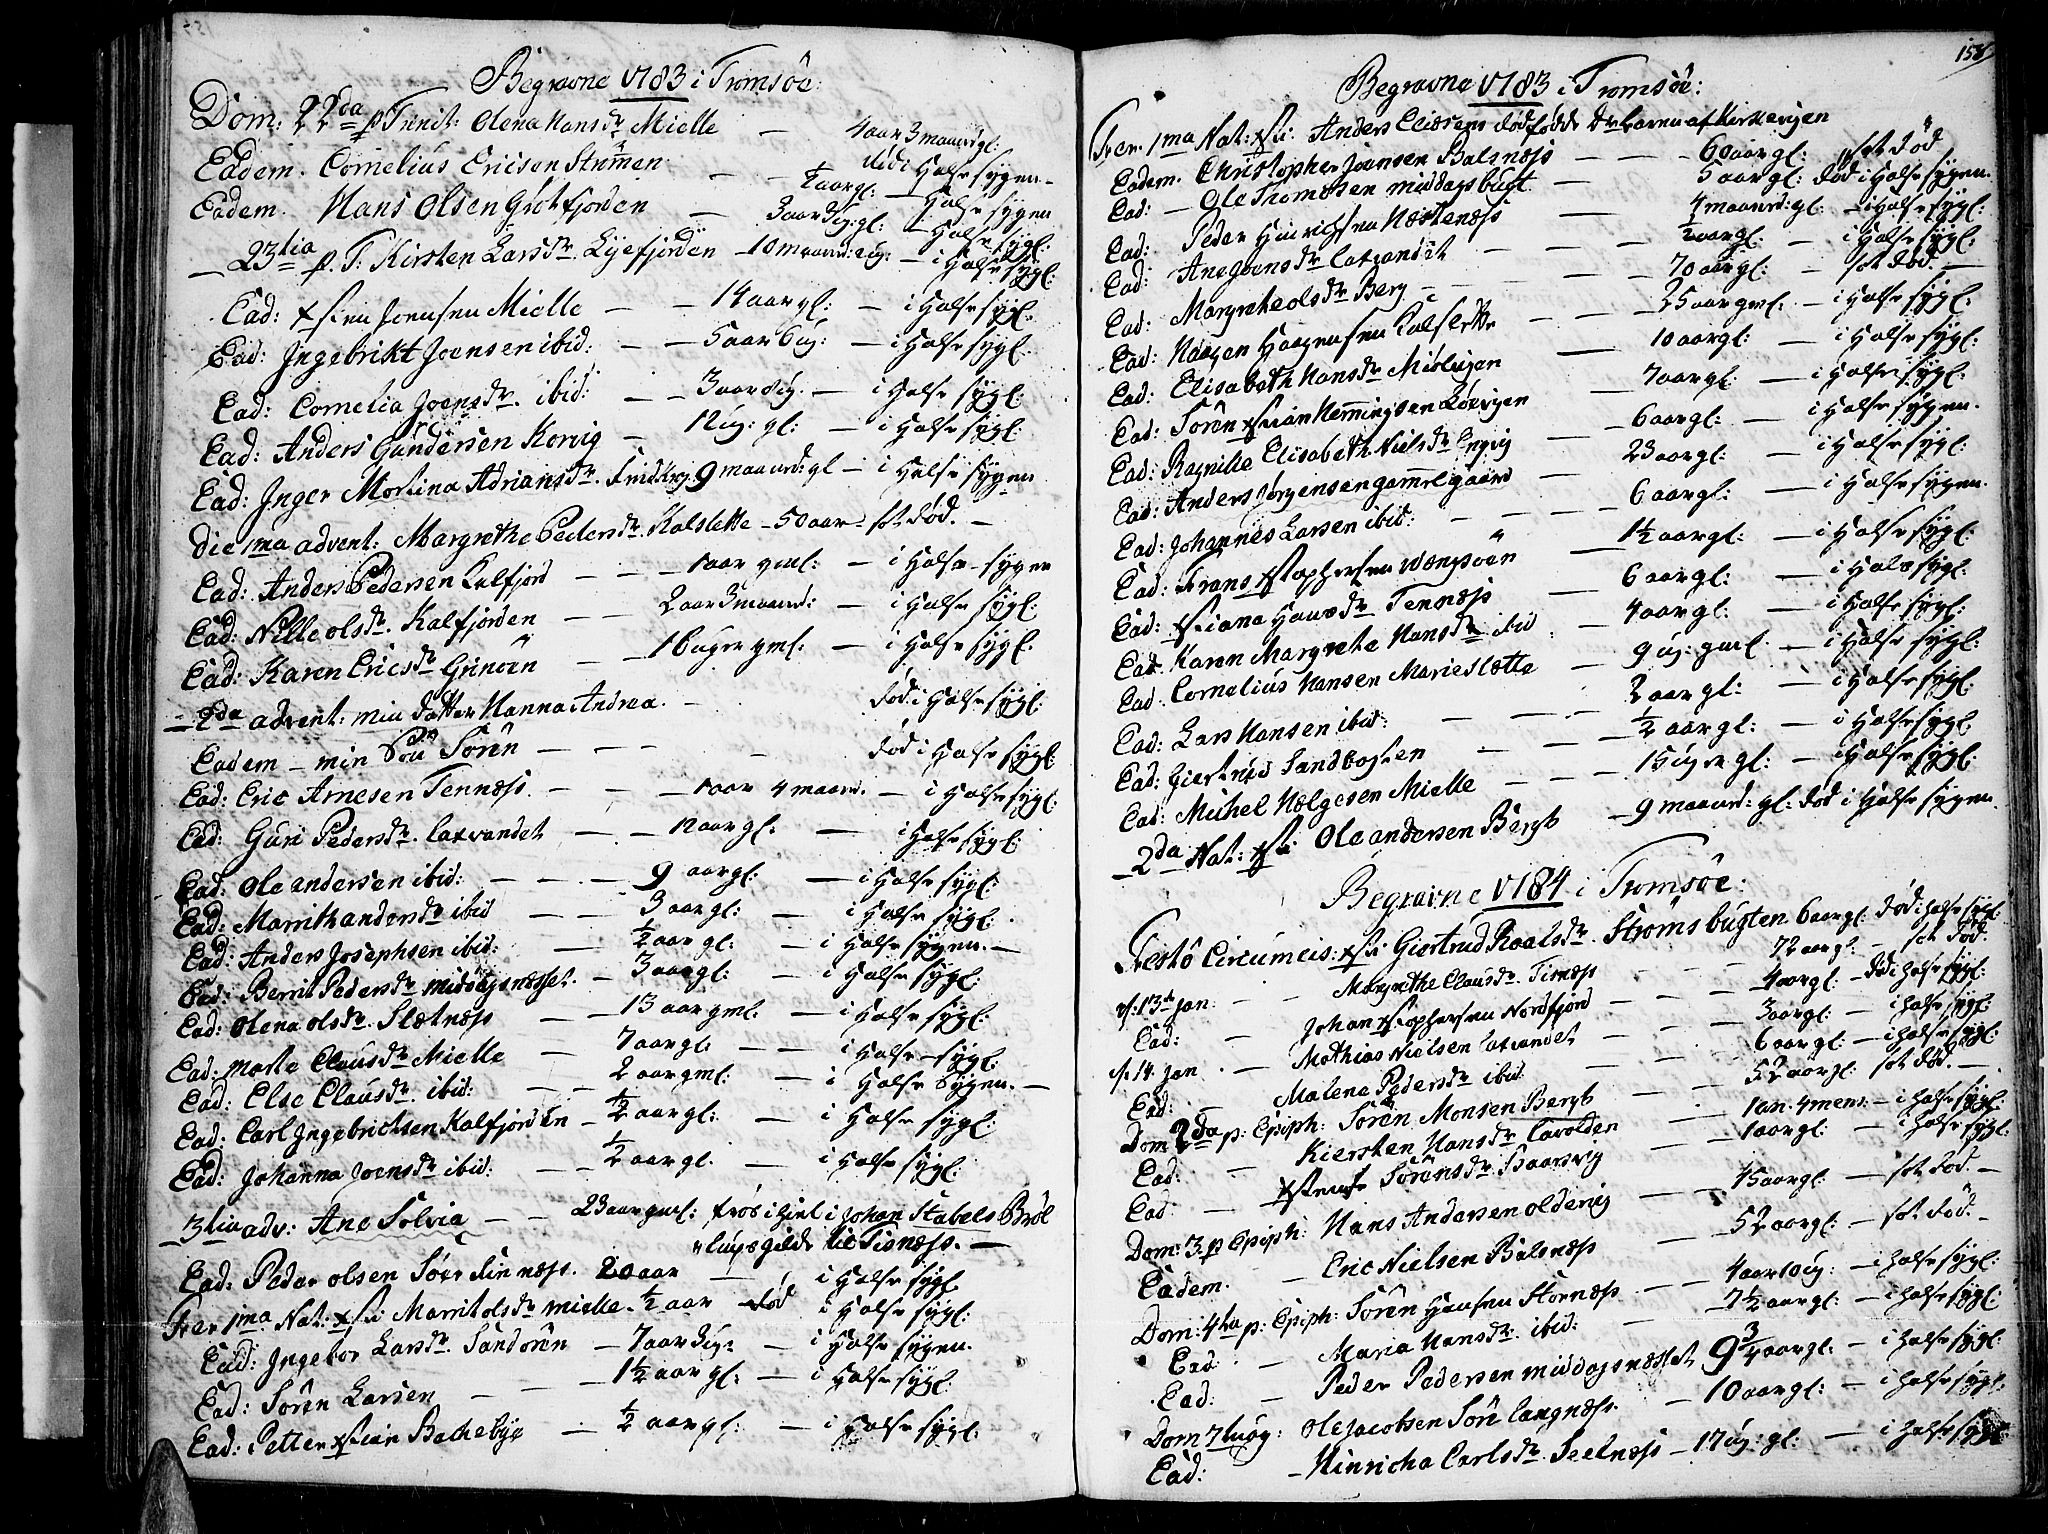 Begravne 1783 i Tromsöe:
Dom: 22da p Trinit: Olena Hansdr Mielle — 4 aar 3 maand gl:
Eadem. Cornelius Ericsen — død i Halsesygen
Eadem. Hans Olsen Grötfjorden — 3 aar gl: — Halsesygen
— 23tia p. T: Kirsten Larsdr. Lyefjorden — 10 maan: — i Halsesygl:
Ead: Xsten Joensen Mielle — 14 aar gl: — i Halsesygl:
Ead: Ingebrikt Joensen ibid: — 5 aar 6 ug: — i Halsesygl:
Ead: Cornelia Joensdr. ibid: — 3 aar — i Halsesygl:
Ead: Anders Gundersen Korvig — 12 ug: gl: — i Halsesygl:
Ead: Inger Martina Adriansdr. 9 maand: gl — i Halsesygen
Die 1ma advent: Margrethe Pedersdr. Kalslette — 50 aar — sot død. —
Ead: Anders Pedersen Kalfjord — 1 aar gml: — i Halse-sygen
Ead: Nille olsdr. Kalfjorden — 2 aar 3 maand: — i Halsesygl:
Ead: Karen Ericsdr Grinöen — 16 uger gml. — i Halsesygl:
— 2da advent: min datter Hanna Andrea. — død i Halsesygl:
Eadem — min Sön Sören — død i Halsesygl:
Ead: Eric Arnesen Tennæs — 1 aar 4 maan. — i Halsesygl:
Ead: Guri Pedersdr. Laxvandet — 12 aar gl: — i Halsesygl:
Ead: Ole andersen ibid: — 9 aar gl: — i Halsesygl:
Ead: Marrith andersdr ibid — 3 aar gl: — i Halsesygl.
Ead: Anders Josephsen ibid: — ½ aar gl: — i Halsesygen. —
Ead: Berrit Pedersdr middagsnæsset. — 3 aar gl: — i Halsesygl:
Ead: Olena olsdr. Sletnæs — 13 aar gml. — i Halsesygl:
Ead: Marte Clausdr Mielle — 7 aar gl: — i Halse-sygl:
Ead: Else Clausdr. ibid: — 2 aar gml: — i Halse Sygen. —
Ead: Carl Ingebrictsen Kalfjorden — ½ aar gl: — i Halsesygl:
Ead: Johanna Joensdr ibid: — ½ aar gl. — i Halsesygl:
— 3tia adv: Ane Solvia — 23 aar gml: frös i hiel i Johan Stabels Bröl-
lups gilde til Tisnæs. —
Ead: Peder olsen Sör Tinnæs. 20 aar — i Halsesygl.
Fer 1ma Nat: Xsti Marrit olsdr mielle. ½ aar — død i Halsesygl:
Ead: Ingebor Larsdr. Sandören — 7 aar — i Halsesygen.
Ead: Sören Larsen — 1½ aar gl: — i Halsesygl:
Ead: Petter Xstian Backebye — ½ aar gl: — i Halsesygl:
158
Begravne 1783 i Tromsöe:
Fer. 1ma Nat: Xsti: Anders Eliesens dödfödde
Eadem. Christopher Joensen Balsnæs — 60 aar gl: sot død
Ead: — Ole Thomesen middagsbugt. — 5 aar gl: død i Halsesygen.
Ead: Peder Hinrichsen Næstenæs — 4 maand: gl — i Halsesygl:
Ead: Ane Joensdr laxvandet — 2 aar gl: — i Halsesygl:
Ead: Margrethe olsdr Berg — 70 aar gl: — sot død. —
Ead: Haagen Haagensen Kalslette — 25 aar gml. — i Halsesygl:
Ead: Elisabeth Hansdr — 10 aar gl: — i Halsesygl:
Ead: Sören Xstian Hemmingsen — 7 aar gl: — i Halsesygl:
Ead: Ragnille Elisabeth Nielsdr — 6 aar gl: — i Halsesygen.
Ead: Anders Jørgensen gammelgaard — 23 aar gl: — i Halsesygl:
Ead: Johannes Larsen ibid: — 6 aar gl: — i Halsesygen.
Ead: Frans Xstophersen Vengsöen — 1½ aar gl: — i Halsesygl:
Ead: Xstiana Hansdr Tennæs — 6 aar gl: — i Halsesygl:
Ead Karen Margrete Hansdr ibid: — 4 aar gl: — i Halsesygl:
Ead: Cornelius Hansen Marieslætte — 9 ug: gml — i Halsesygl:
Ead: Lars Hansen ibid: — 2 aar gl: — i Halsesygl:
Ead: Giertrud Sandbogten — ½ aar gl: — i Halsesygl:
Ead: Michel Helgesen Mielle — 15 uger gl: — i Halsesygl:
— 2da Nat: Xsti Ole andersen Bergb — 9 maaned: gl: død i Halsesygen
Begravne 1784 i Tromsöe:
Festo Circumcis: Xsti Giertrud Roalsdr. Strömsbugten 6 aar gl: død i halsesygl:
d. 13de jan: — Margrethe Clausdr. Tisnæs — 72 aar gl. — sot død.
Ead: Johan Xstophersen Nordfjord — 4 aar gl: — død i halsesygl:
d. 14 jan. — Mathias Nielsen laxvandet — 3 aar gl: — i halsesygl:
Ead: Malena Pedersdr ibid: — 6 aar gl: — i halsesygl:
Dom 2da p: Epiph: Sören Monsen Bergb — 52 aar gl: sot død. —
Ead: Kiersten Hansdr Lavolden — 1 an. 4 mens: — i halsesygl:
Ead: Sörensdr. Haarvig — 1 aar gl: — i halsesygl:
Dom: 3. p Epiph: Hans Andersen oldervig — 45 aar gl: — sot død. —
Eadem. Eric Nielsen Balsnæs — 52 aar gl: — sot død. —
Dom: 4ta p: Epiph: Sören Hansen Stornæs — 4 aar 10 ug: — i halsesygl:
Ead — Maria Hansdr. ibid: — 7½ aar gl: — i halsesygl:
Ead: Peder Pedersen middagsnæsset 9¾ aar gl: — i halsesygl:
Dom 7tuag: Ole Jacobsen Sörlangnæs — 10 aar gl: — i halsesygl:
Ead: — Hinricha Carlsdr. Seetnæs — 17 ug: gl: — i halsesygl: